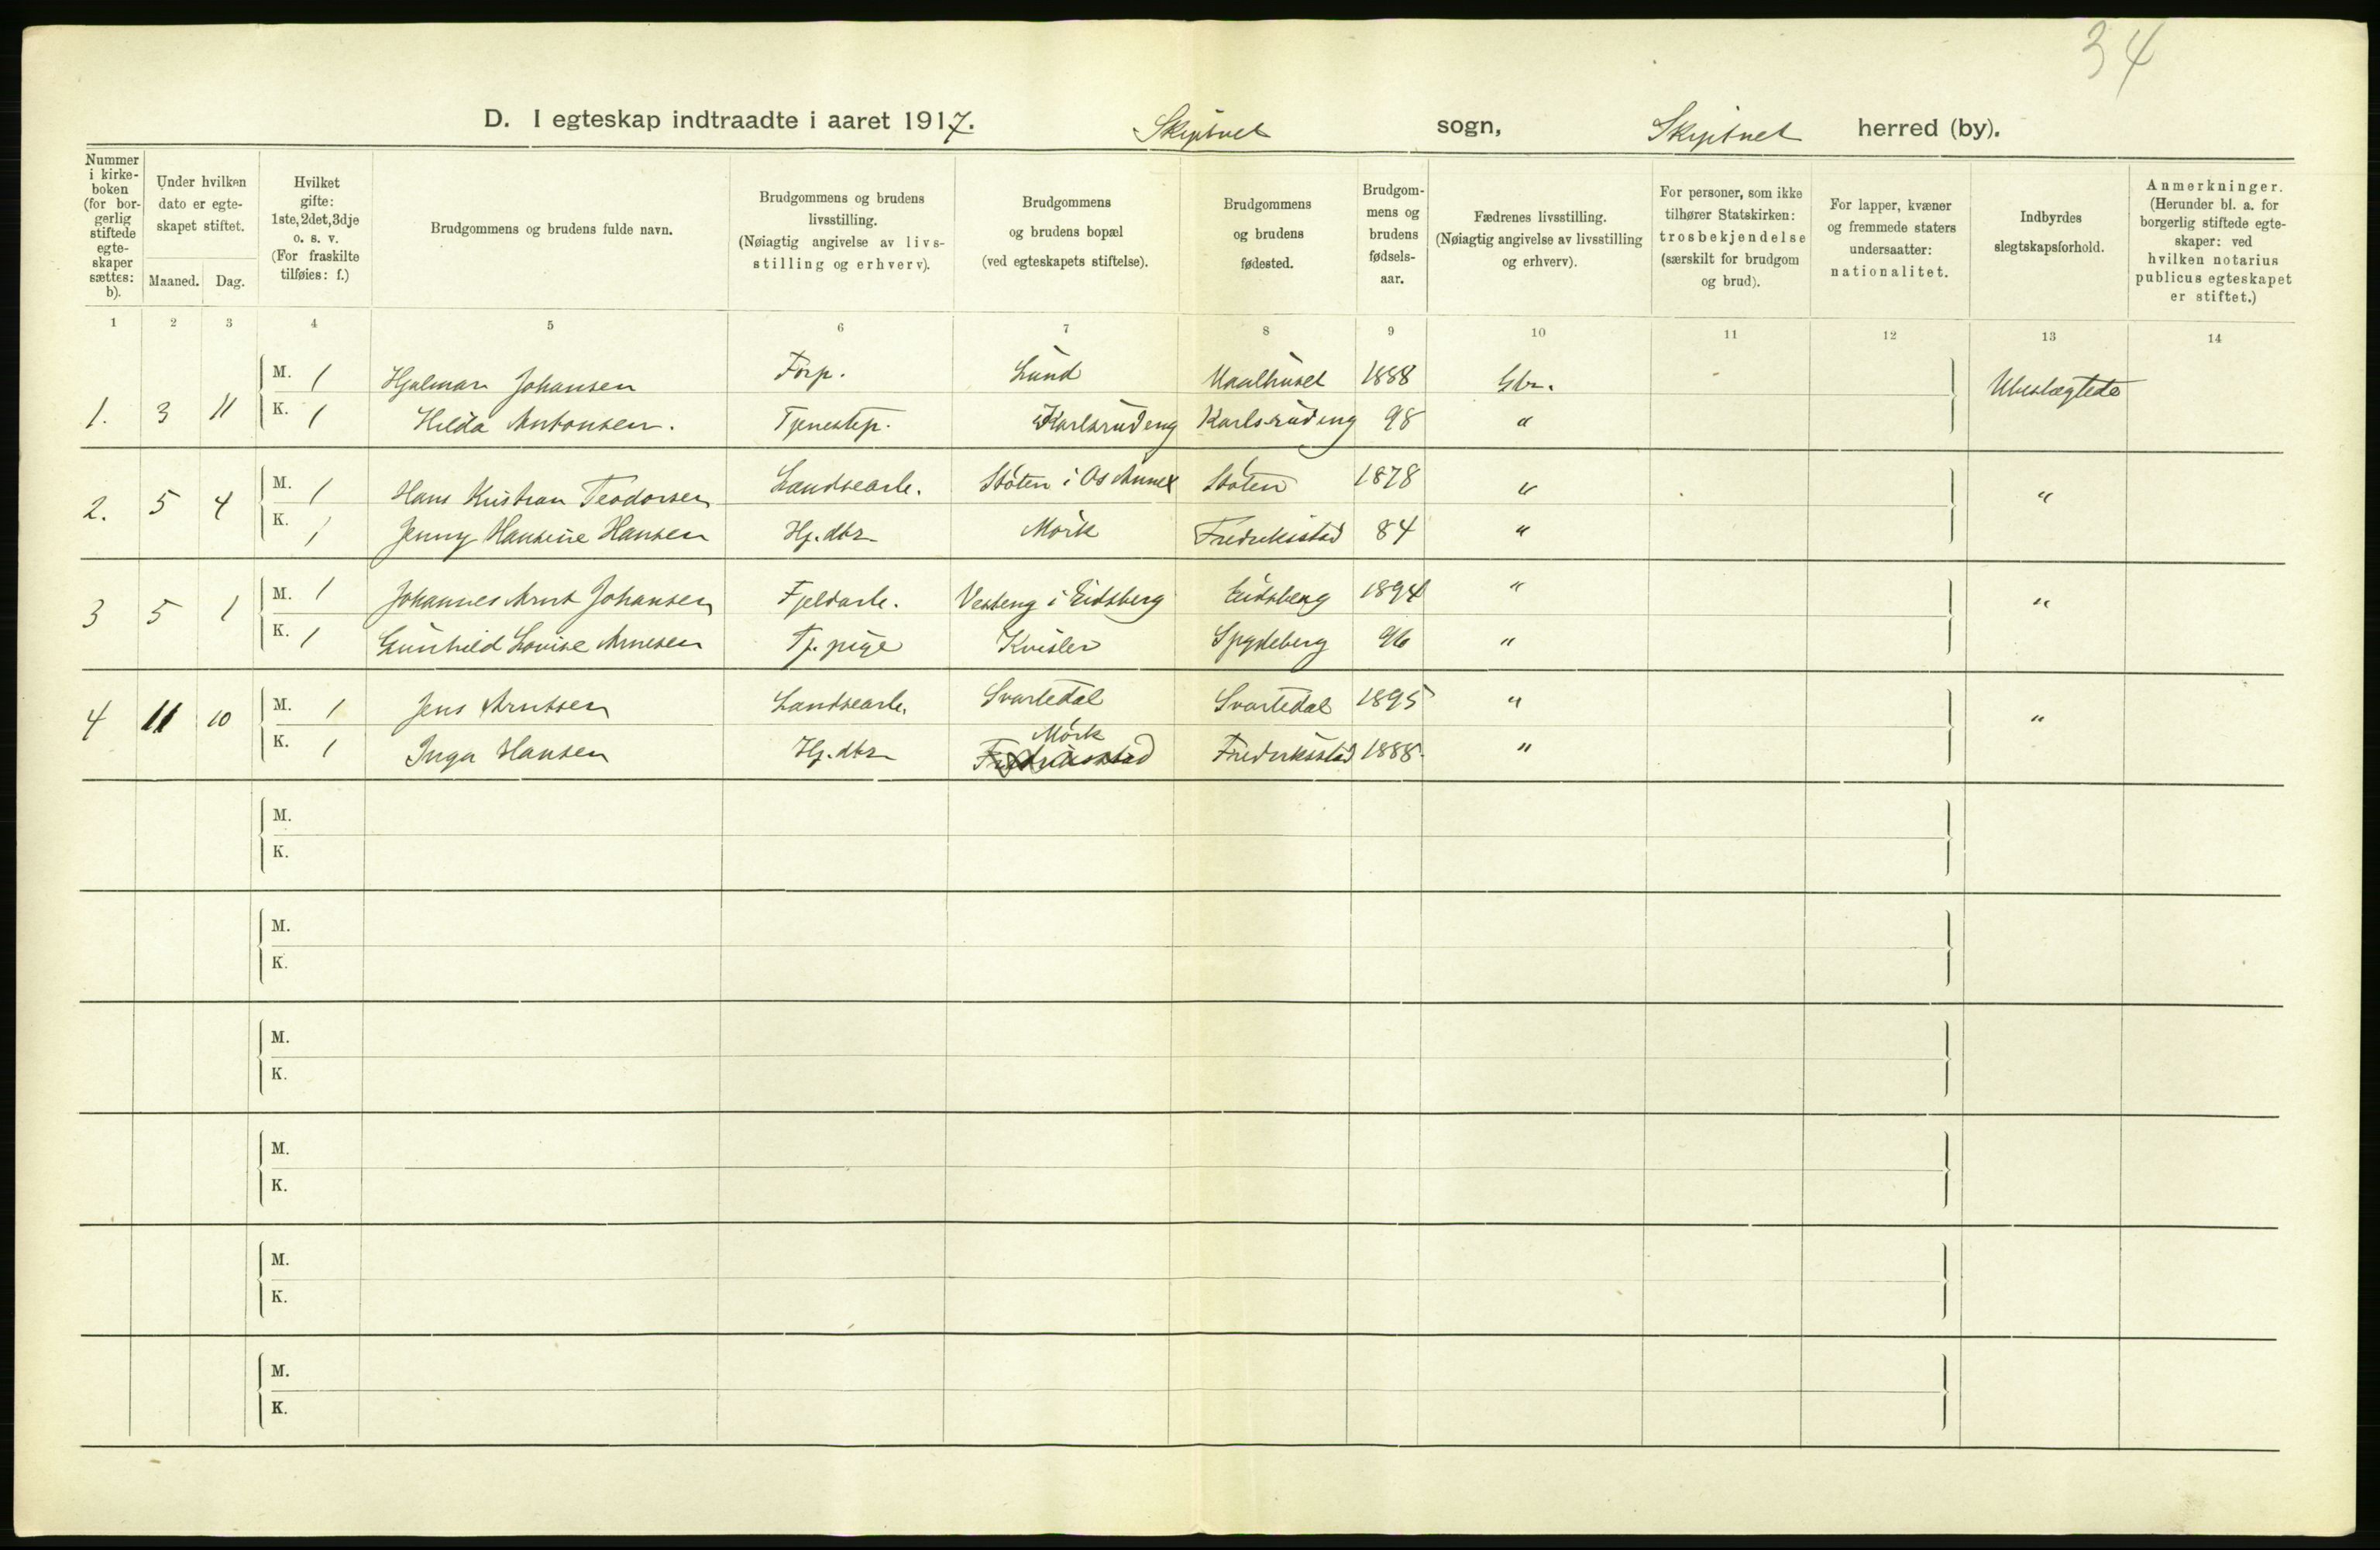 34
D. I egteskap indtraadte i aaret 1917. Skiptvet sogn, Skiptvet herred (by).
Nummer i kirke-boken (for bor-gerlig stiftede egte-skaper sættes: b).
Under hvilken dato er egte-skapet stiftet.
Maaned. Dag.
Hvilket gifte: 1ste, 2det, 3dje o. s. v. (For fraskilte tilføies: f.)
Brudgommens og brudens fulde navn.
Brudgommens og brudens livsstilling. (Nøiagtig angivelse av livs-stilling og erhverv).
Brudgommens og brudens bopæl (ved egteskapets stiftelse).
Brudgommens og brudens fødested.
Brudgom-mens og brudens fødsels-aar.
Fædrenes livsstilling. (Nøiagtig angivelse av livsstilling og erhverv).
For personer, som ikke tilhører Statskirken: trosbekjendelse (særskilt for brudgom og brud).
For lapper, kvæner og fremmede staters undersaatter: nationalitet.
Indbyrdes slegtskapsforhold.
Anmerkninger. (Herunder bl. a. for borgerlig stiftede egte-skaper: ved hvilken notarius publicus egteskapet er stiftet.)
1 2 3 4 5 6 7 8 9 10 11 12 13 14
1. 3 11 M. 1 Hjalmar Johansen Forp. Lund Maalhuset 1888 Gbr. Ubeslægtede
K. 1 Hilda Antonsen. Tjenestep. Karlsrudeng Karlsrudeng 98 "
2. 5 4 M. 1 Hans Kristian Teodorsen Landsearb. Støten i Os Annex Støten 1878 " "
K. 1 Jenny Hansine Hansen Hj. dtr Mørk Fredriksstad 84 "
3 5 1 M. 1 Johannes Arnt Johansen Fjeldarb. Vesteng i Eidsberg Eidsberg 1894 " "
K. 1 Gunhild Lovise Arnesen Tj. pige Kvisler Spydeberg 96 "
4 11 10 M. 1 Jens Arntsen Landsearb. Svartedal Svartedal 1895 " "
Mørk
K. 1 Inga Hansen Hj. dtr Fredriksstad Fredriksstad 1888. "
M.
K.
M.
K.
M.
K.
M.
K.
M.
K.
M.
K.